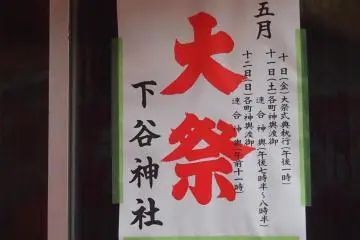 五月
十日(金)大祭式典執行(午後一時)
十一日(土)各町神輿渡御
連合神輿(午後七時半～八時半)
十二日(日)各町神輿渡御
連合神輿(午前十一時)
大祭
下谷神社